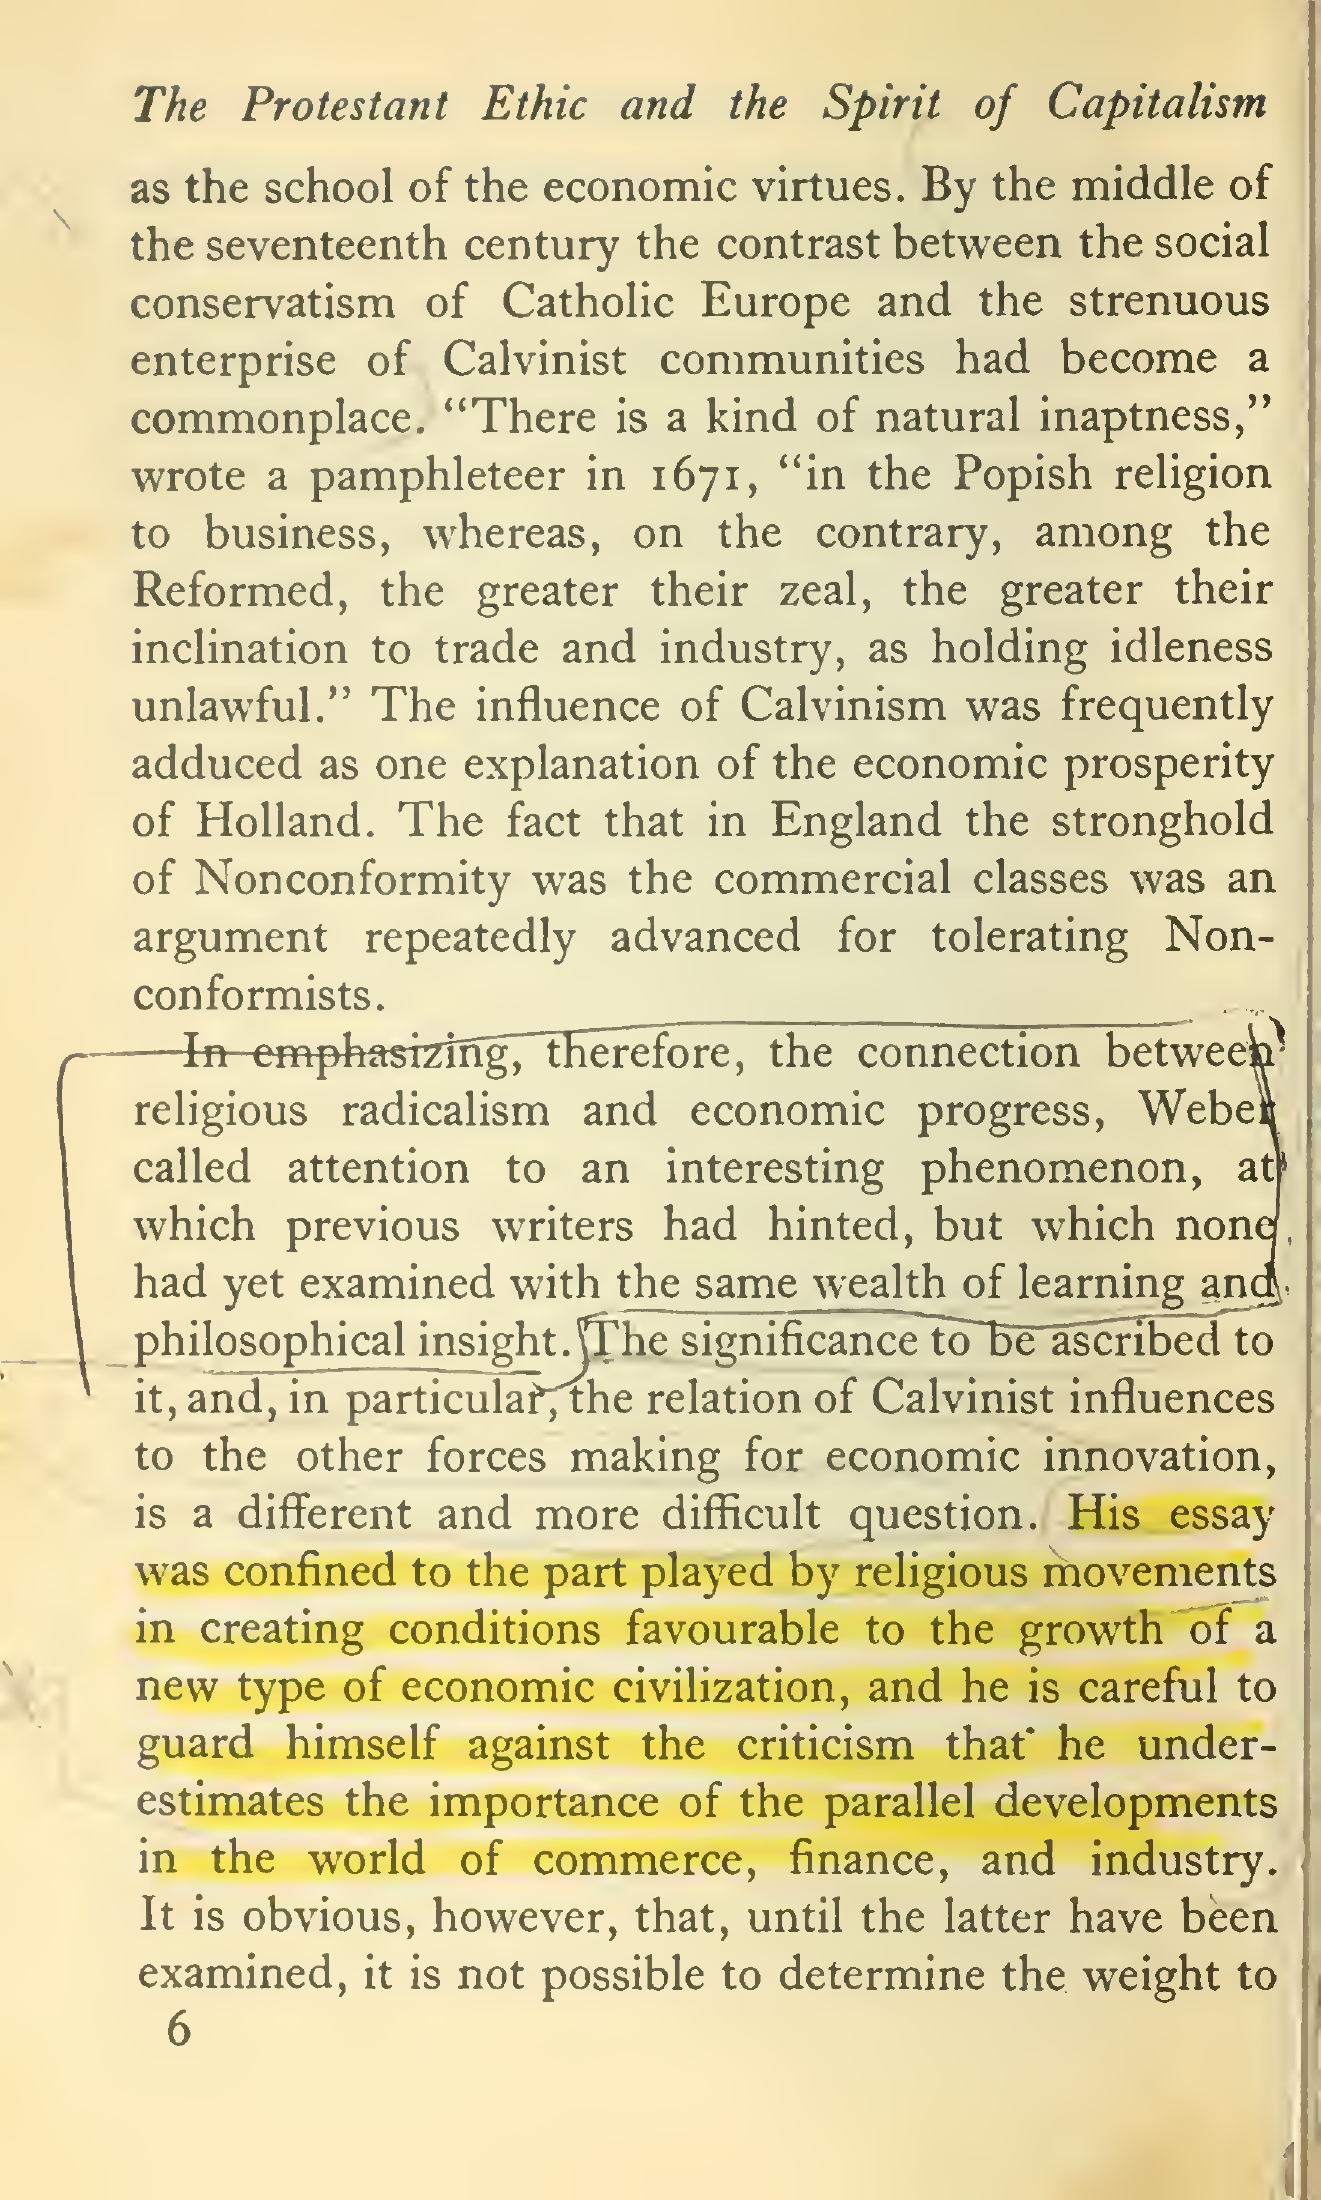 The Protestant Ethic and the Spirit of Capitalism
as the school of the economic virtues. By the middle of
the seventeenth century the contrast between the social
conservatism of Catholic Europe and the strenuous
enterprise of Calvinist communities had become a
commonplace. “There is a kind of natural inaptness,”
wrote a pamphleteer in 1671, “in the Popish religion
to business, whereas, on the contrary, among the
Reformed, the greater their zeal, the greater their
inclination to trade and industry, as holding idleness
unlawful.” The influence of Calvinism was frequently
adduced as one explanation of the economic prosperity
of Holland. The fact that in England the stronghold
of Nonconformity was the commercial classes was an
argument repeatedly advanced for tolerating Non-
conformists.
In emphasizing, therefore, the connection between
religious radicalism and economic progress, Weber
called attention to an interesting phenomenon, at
which previous writers had hinted, but which none
had yet examined with the same wealth of learning and
philosophical insight. The significance to be ascribed to
it, and, in particular, the relation of Calvinist influences
to the other forces making for economic innovation,
is a different and more difficult question. His essay
was confined to the part played by religious movements
in creating conditions favourable to the growth of a
new type of economic civilization, and he is careful to
guard himself against the criticism that he under-
estimates the importance of the parallel developments
in the world of commerce, finance, and industry.
It is obvious, however, that, until the latter have been
examined, it is not possible to determine the weight to
6